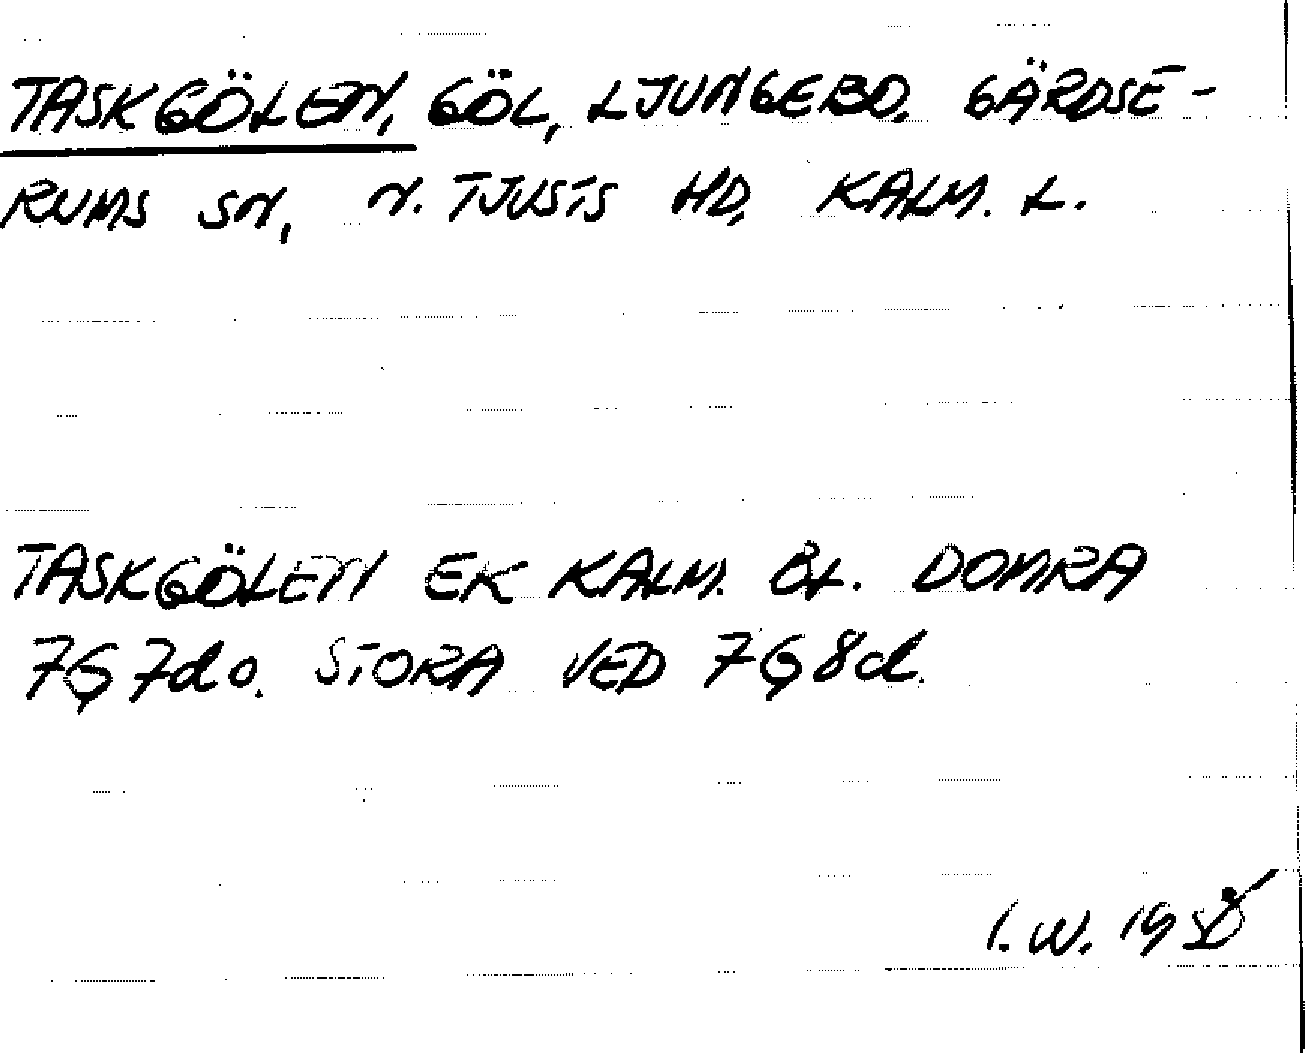 TASKGÖLEN, GÖL, LJUNGEBO, GÄRDSE-
RUMS SN, N. TJUSTS HD, KALM. L.
TASKGÖLEN EK KALM. BL. DONRA
7G7do. STORA VED 7G8d.
I.W.